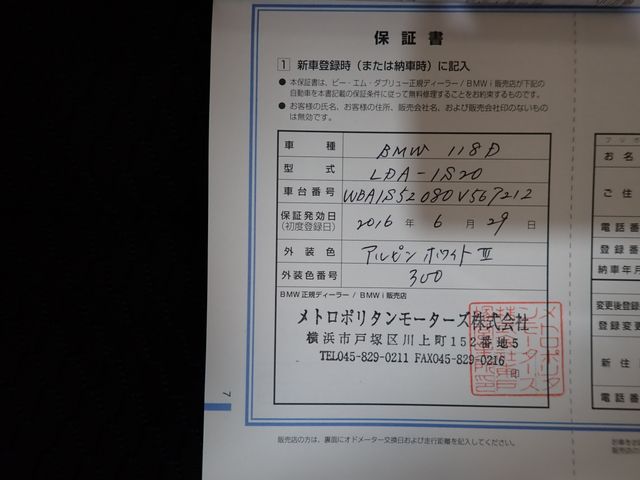 保証書
1 新車登録時（または納車時）に記入
● 本保証書は、ビー・エム・ダブリュー正規ディーラー / BMW i 販売店が下記の
自動車を本書記載の保証条件に従って無料修理することをお約束するものです。
● お客様の氏名、お客様の住所、販売会社名、および販売会社印のないもの
は無効です。
車種 BMW 118D
型式 LDA-1S20
車台番号 WBA1S52080V567212
保証発効日
(初度登録日) 2016 年 6 月 29 日
外装色 アルピン ホワイト Ⅲ
外装色番号 300
BMW 正規ディーラー / BMW i 販売店
メトロポリタンモーターズ株式会社
横浜市戸塚区川上町152番地5
TEL045-829-0211 FAX045-829-0216
印
7
販売店の方は、裏面にオドメーター交換日および走行距離を記入してください。
お名
ご住
電話番
登録番
納車年月
変更後登録
登録変更
新住
電話番